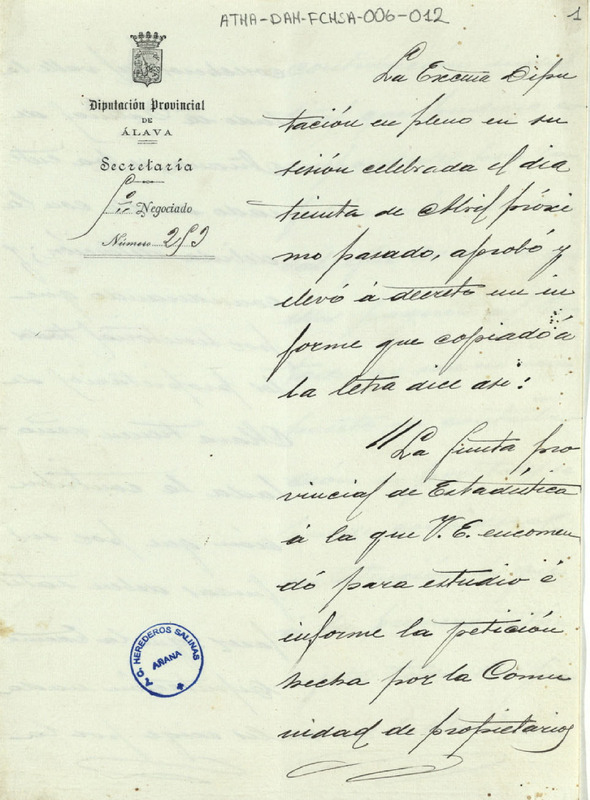 ATHA-DAH-FCHSA-006-012
1
Diputación Provincial
DE
ÁLAVA
Secretaría
Negociado
Número 253
La Excma Dipu
tación en pleno en su
sesión celebrada el dia
treinta de Abril próxi
mo pasado, aprobó y
elevó á decreto un in
forme que copiado á
la letra dice asi:
"La Junta pro
vincial de Estadística
á la que V. E. encomen
dó para estudio é
informe la petición
hecha por la Comu
nidad de propietarios
HEREDEROS SALINAS
ARANA